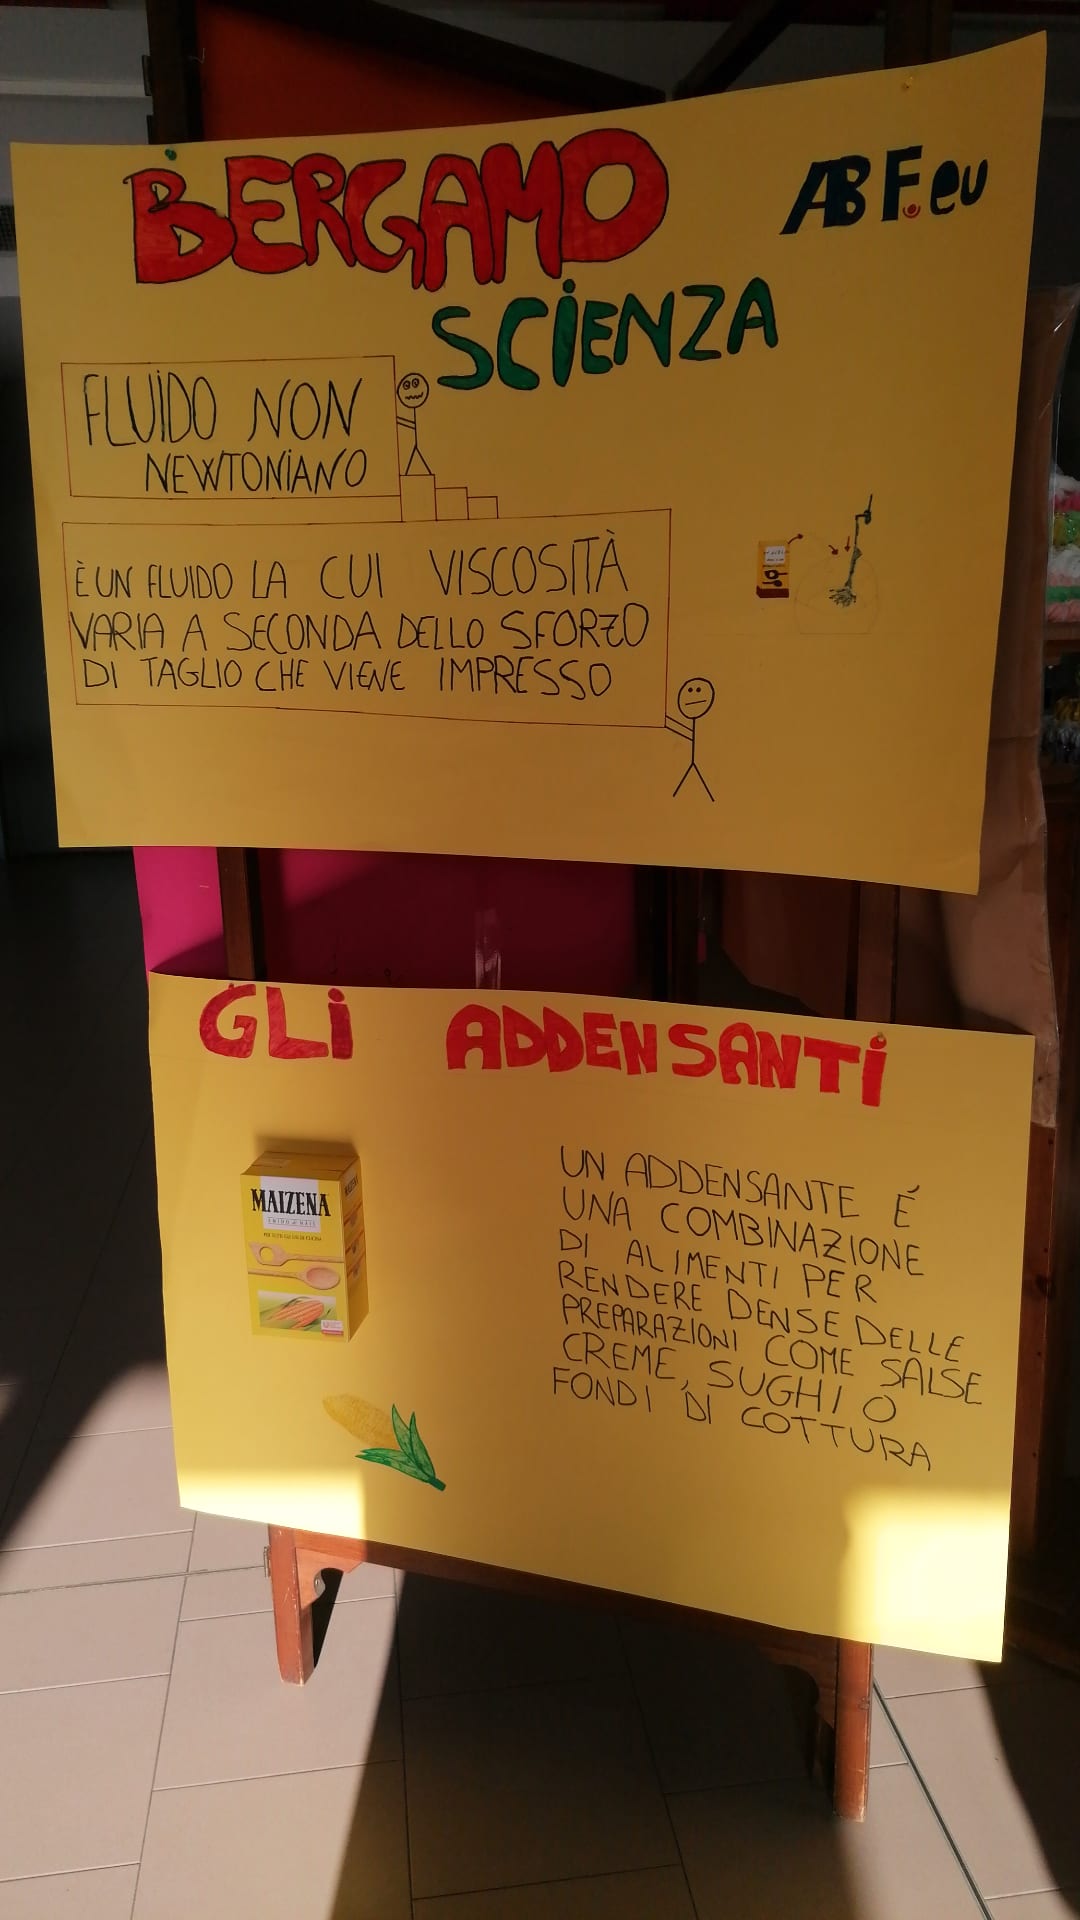 BERGAMO
ABF.eu
SCIENZA
FLUIDO NON
NEWTONIANO
È UN FLUIDO LA CUI VISCOSITÀ
VARIA A SECONDA DELLO SFORZO
DI TAGLIO CHE VIENE IMPRESSO
GLI ADDENSANTI
MAIZENA
AMIDO di MAIS
PER TUTTI GLI USI DI CUCINA
UN ADDENSANTE É
UNA COMBINAZIONE
DI ALIMENTI PER
RENDERE DENSE DELLE
PREPARAZIONI COME SALSE
CREME, SUGHI O
FONDI DI COTTURA